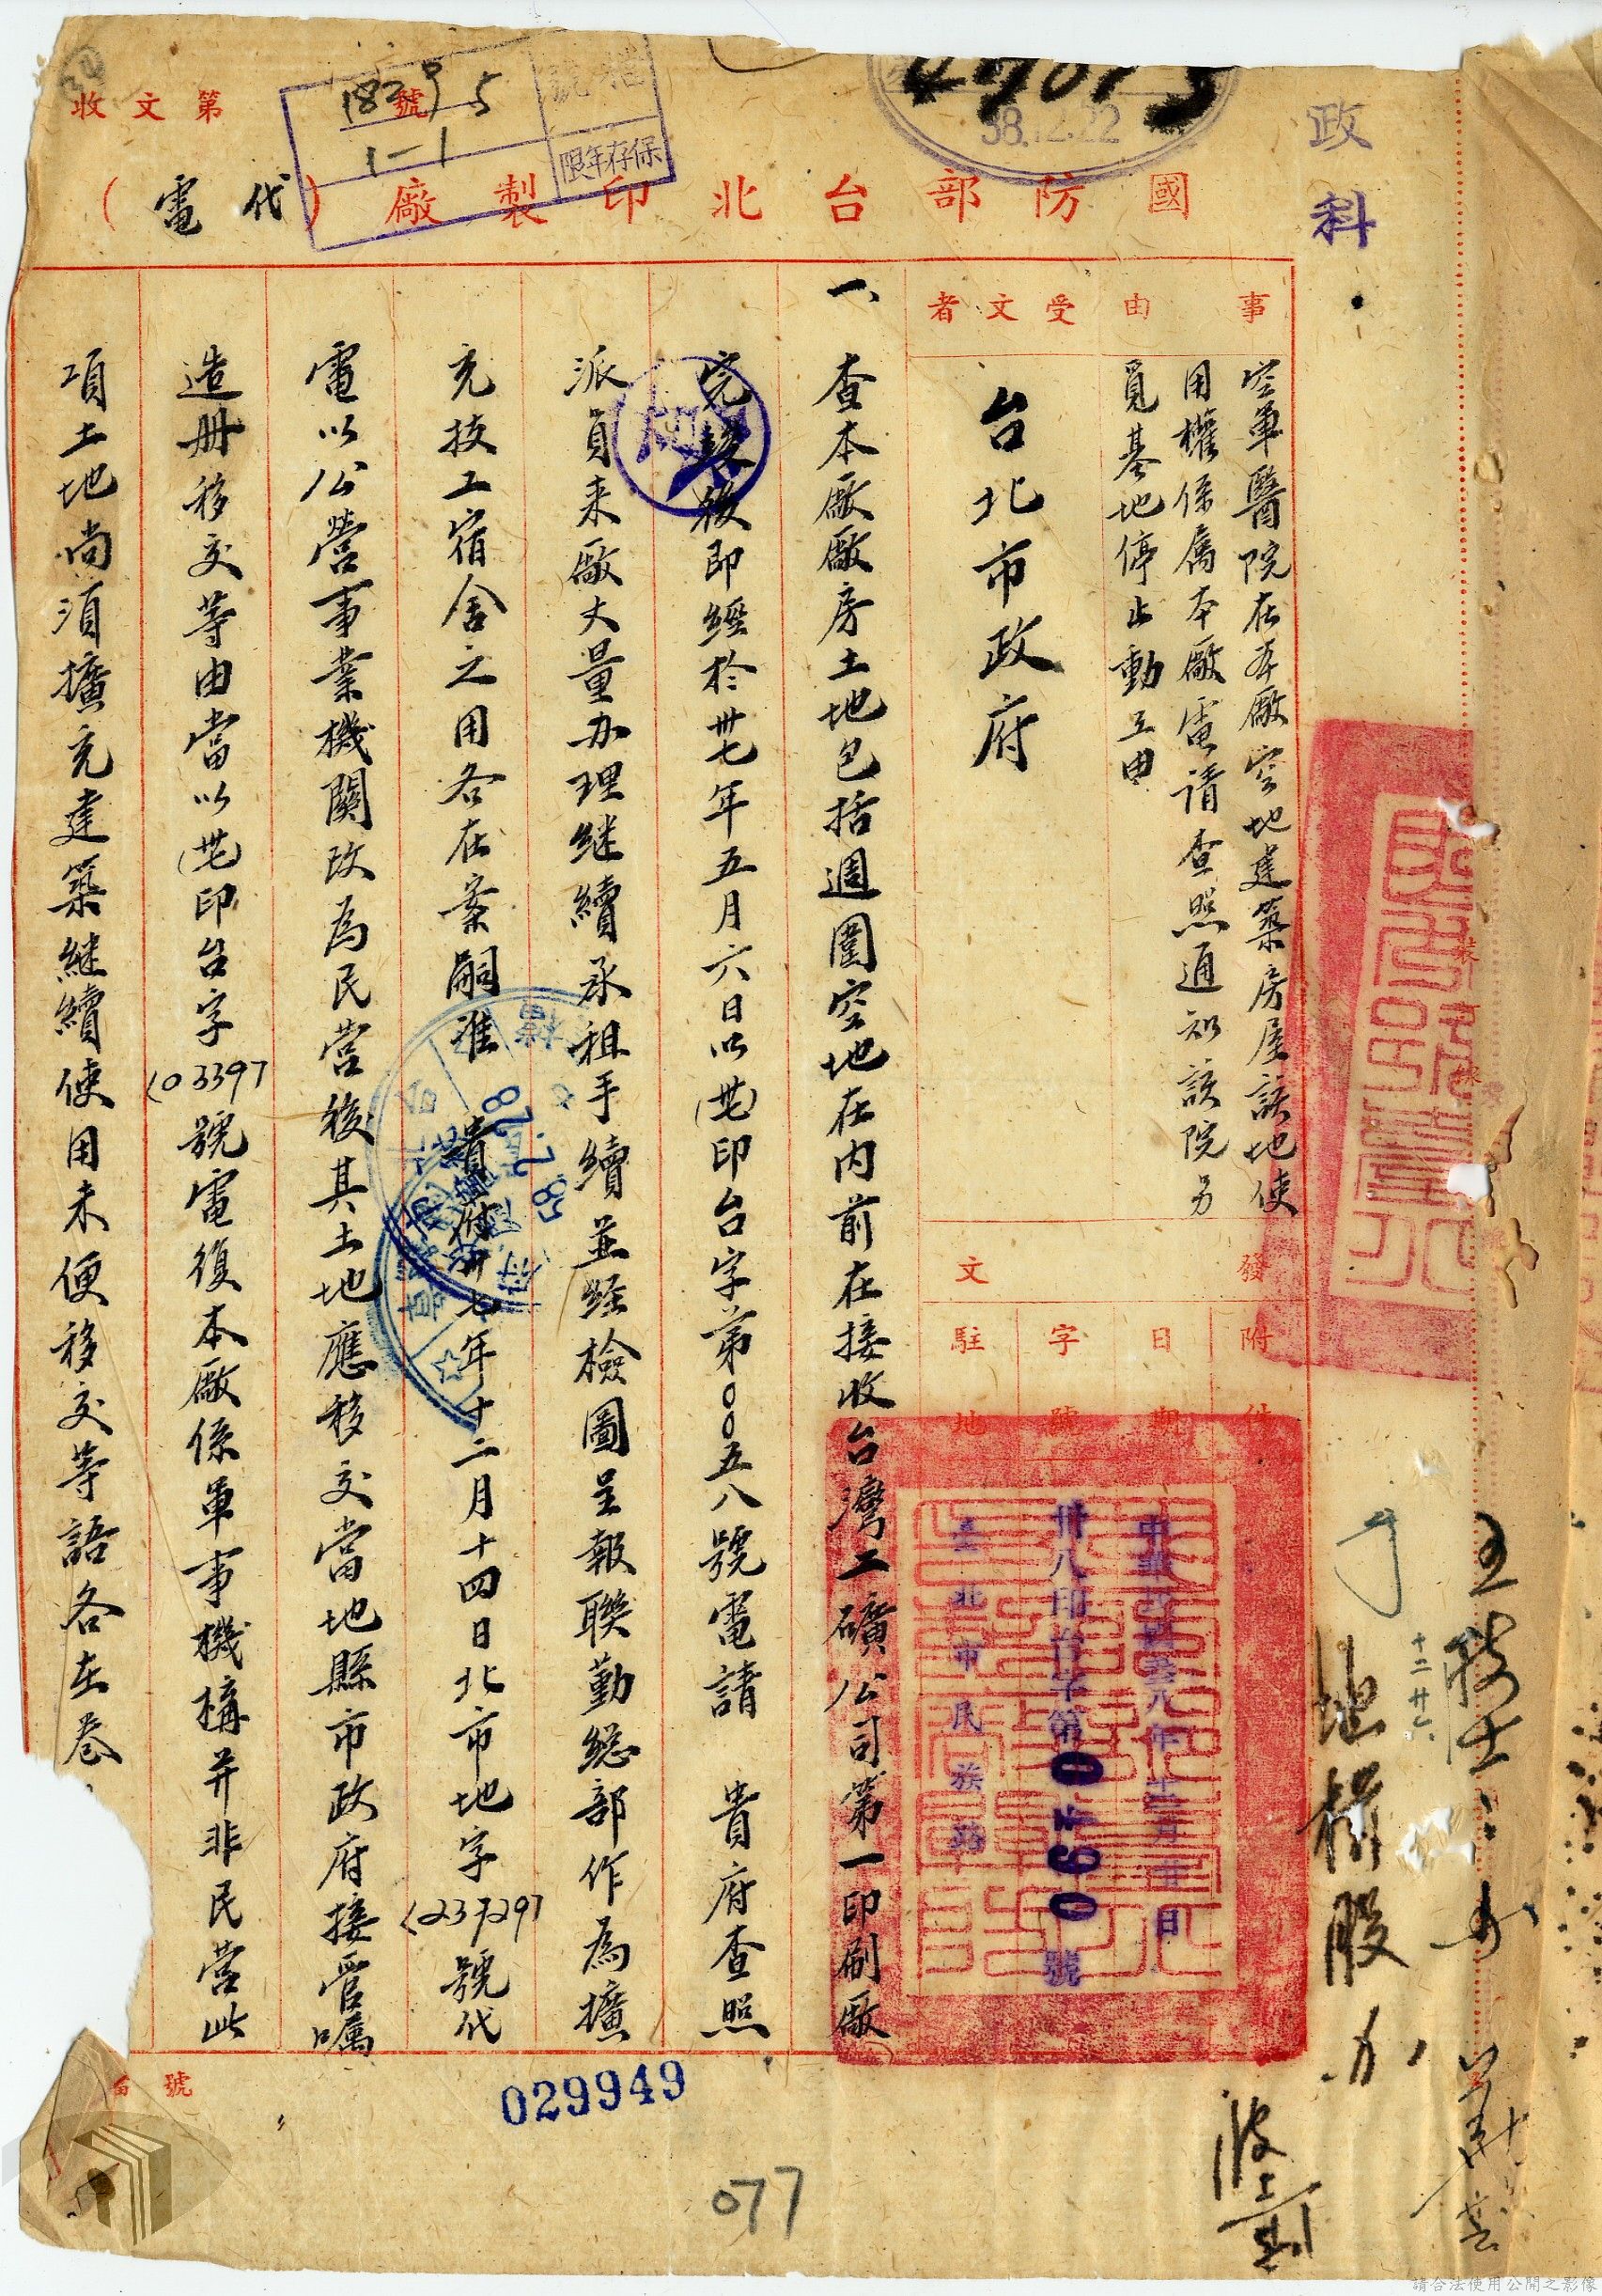 政科
收文第 號
1829 5
1-1
檔號
保存年限
47015
38.12.22
國防部台北印製廠(代電)
事由
空軍醫院在本廠空地建築房屋該地使
用權係屬本廠電請查照通知該院另
覓基地停止動工由
受文者
台北市政府
發文
附件
日期
中華民國卅八年十二月 日
字號
卅八印台字第0490號
駐地
臺北市民族路
一、查本廠廠房土地包括週圍空地在內前在接收台灣工礦公司第一印刷廠
完竣後即經於卅七年五月六日以(卅七)印台字第00五八號電請 貴府查照
派員來廠丈量办理继續承租手續並經檢圖呈報聯勤總部作為擴
充技工宿舍之用各在案嗣准 貴府卅七年十二月十四日北市地字(237297號代
電以公營事業機關改為民营後其土地應移交當地縣市政府接管囑
造册移交等由當以(卅七)印台字(03397號電復本廠係軍事機構并非民营此
項土地尚須擴充建築継續使用未便移交等語各在卷
地權股办
十二廿六
029949
077
號
請合法使用公開之影像